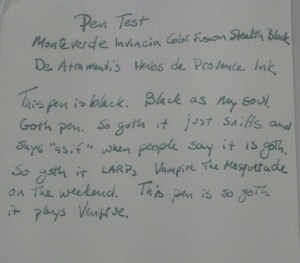 Pen Test
Monteverde Invincia Color Fusion Stealth Black
De Atramentis Herbs de Provence Ink
This pen is black. Black as my soul.
Goth pen. So goth it just sniffs and
says "as if" when people say it is goth.
So goth it LARPs Vampire The Masquerade
on the weekend. This pen is so goth
it plays Ventrue.